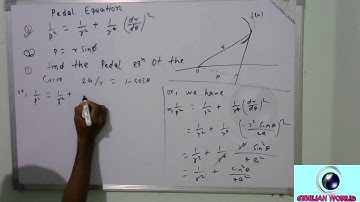 Pedal Equation
1/p² = 1/r² + 1/r⁴ (dr/dθ)²
P = r sinφ
find the Pedal eqⁿ of the
Curve 2a/r = 1-cosθ
1/p² = 1/r² +
we have
1/p² = 1/r² + 1/r⁴ (dr/dθ)²
= 1/r² + 1/r⁴ (-r² sinθ/2a)²
= 1/r² +
= 1/r² + sin²θ/4a²
GIBILIAN WORLD